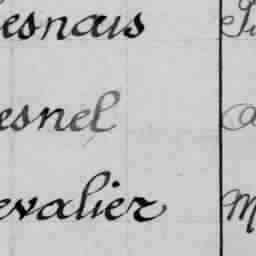 esnais
esnel
evalier M